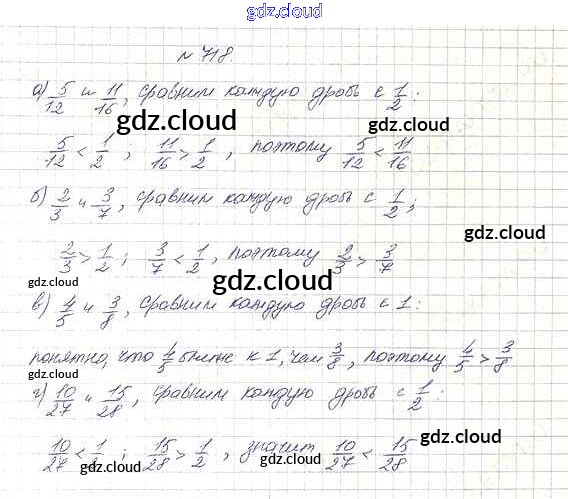 gdz.cloud
№ 718.
а) 5/12 и 11/16, сравним каждую дробь с 1/2:
gdz.cloud gdz.cloud
5/12 < 1/2; 11/16 > 1/2, поэтому 5/12 < 11/16
gdz.cloud
б) 2/3 и 3/7, сравним каждую дробь с 1/2;
gdz.cloud
2/3 > 1/2; 3/7 < 1/2, поэтому 2/3 > 3/7
gdz.cloud gdz.cloud
в) 4/5 и 3/8, сравним каждую дробь с 1:
понятно, что 4/5 ближе к 1, чем 3/8, поэтому 4/5 > 3/8
gdz.cloud
г) 10/27 и 15/28, сравним каждую дробь с 1/2:
gdz.cloud
10/27 < 1/2; 15/28 > 1/2, значит 10/27 < 15/28
gdz.cloud